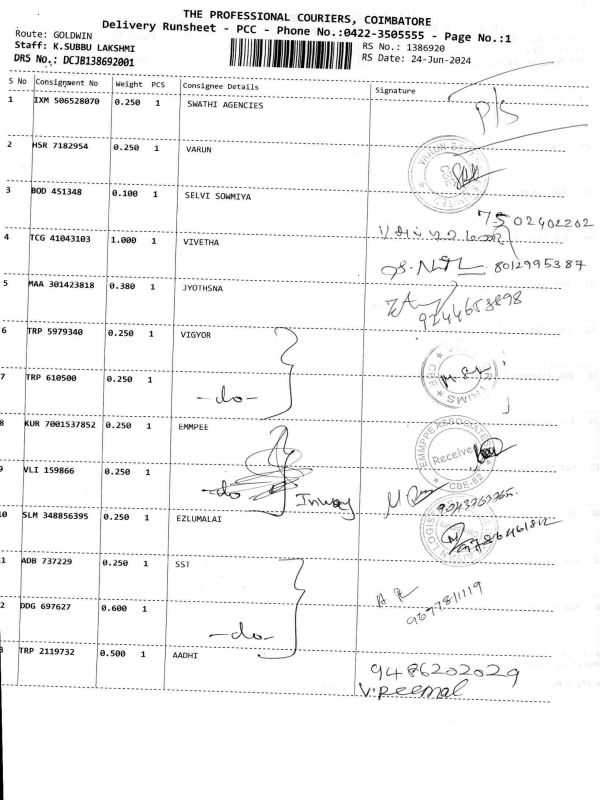 THE PROFESSIONAL COURIERS, COIMBATORE
Delivery Runsheet - PCC - Phone No.:0422-3505555 - Page No.:1
Route: GOLDWIN
Staff: K.SUBBU LAKSHMI RS No.: 1386920
DRS No.: DCJB138692001 RS Date: 24-Jun-2024
S No Consignment No Weight PCS Consignee Details Signature
1 IXM 506528070 0.250 1 SWATHI AGENCIES P/S
2 HSR 7182954 0.250 1 VARUN
3 BOD 451348 0.100 1 SELVI SOWMIYA
7502402202
4 TCG 41043103 1.000 1 VIVETHA
8012995387
5 MAA 301423818 0.380 1 JYOTHSNA
9244658898
6 TRP 5979340 0.250 1 VIGYOR
7 TRP 610500 0.250 1 -do-
8 KUR 7001537852 0.250 1 EMMPEE
EMMPPE ASSOCIATE
Received
CBE-62
9 VLI 159866 0.250 1 -do-
10 SLM 348856395 0.250 1 EZLUMALAI
11 ADB 737229 0.250 1 SST
12 DDG 697627 0.600 1 -do-
13 TRP 2119732 0.500 1 AADHI 9486202029